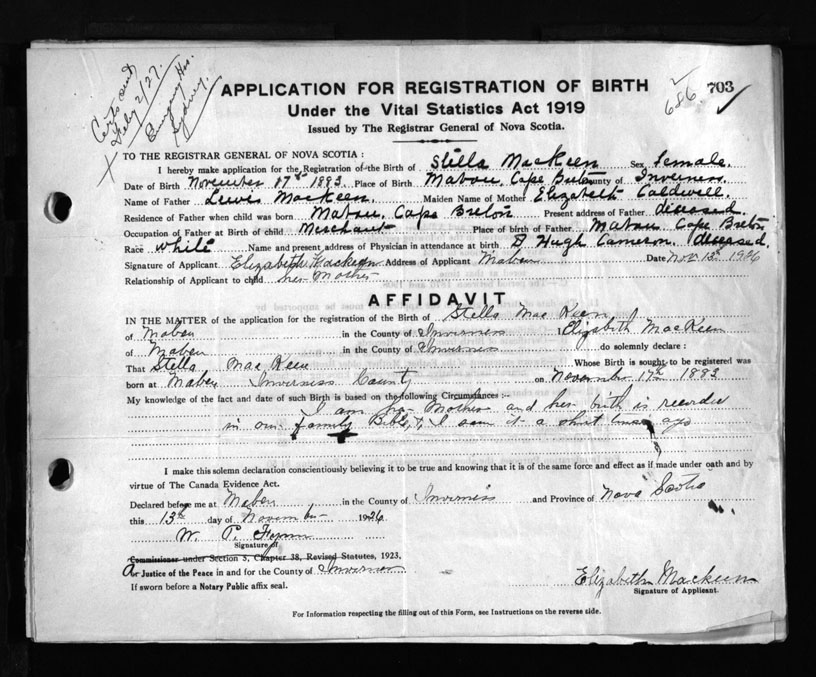 Certs sent
July 2/27.
Sydney.
APPLICATION FOR REGISTRATION OF BIRTH
686 703
Under the Vital Statistics Act 1919
Issued by The Registrar General of Nova Scotia.
TO THE REGISTRAR GENERAL OF NOVA SCOTIA :
I hereby make application for the Registration of the Birth of Stella MacKeen Sex female.
Date of Birth November 17th 1883. Place of Birth Mabou, Cape Breton County of Inverness.
Name of Father Lewis MacKeen. Maiden Name of Mother Elizabeth Caldwell.
Residence of Father when child was born Mabou, Cape Breton Present address of Father deceased
Occupation of Father at Birth of child Merchant Place of birth of Father Mabou Cape Breton
Race white Name and present address of Physician in attendance at birth D Hugh Cameron, deceased.
Signature of Applicant Elizabeth Mackeen Address of Applicant Mabou Date Nov. 13th 1926
Relationship of Applicant to child her Mother
AFFIDAVIT
IN THE MATTER of the application for the registration of the Birth of Stella MacKeen
of Mabou in the County of Inverness I Elizabeth MacKeen
of Mabou in the County of Inverness do solemnly declare :
That Stella MacKeen Whose Birth is sought to be registered was
born at Mabou Inverness County on November 17th 1883
My knowledge of the fact and date of such Birth is based on the following Circumstances :-
I am her Mother and her birth is recorded
in our family Bible, & I saw it a short time ago
I make this solemn declaration conscientiously believing it to be true and knowing that it is of the same force and effect as if made under oath and by
virtue of The Canada Evidence Act.
Declared before me at Mabou in the County of Inverness and Province of Nova Scotia
this 13th day of November 1926
W. P.
Signature of
Commissioner under Section 5, Chapter 38, Revised Statutes, 1923,
or Justice of the Peace in and for the County of Inverness
If sworn before a Notary Public affix seal.
Elizabeth Mackeen
Signature of Applicant.
For Information respecting the filling out of this Form, see Instructions on the reverse side.